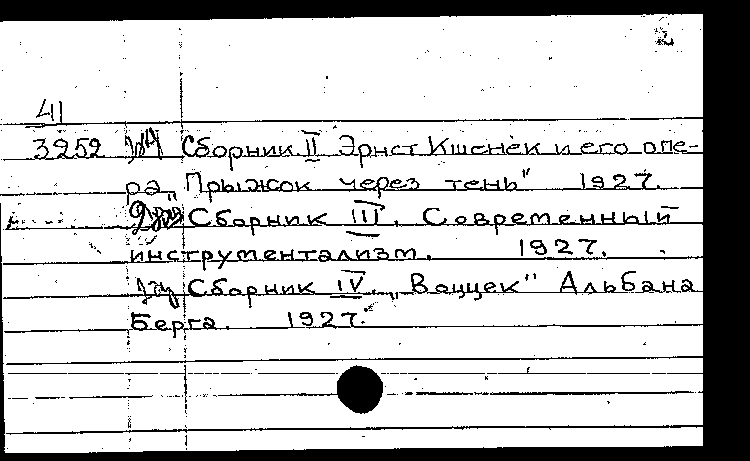 2
41
3252 Сборник II Эрнст Кшенек и его опе-
ра „Прыжок через тень" 1927.
Сборник III. Современный
инструментализм. 1927.
Сборник IV. „Воццек" Альбана
Берга. 1927.